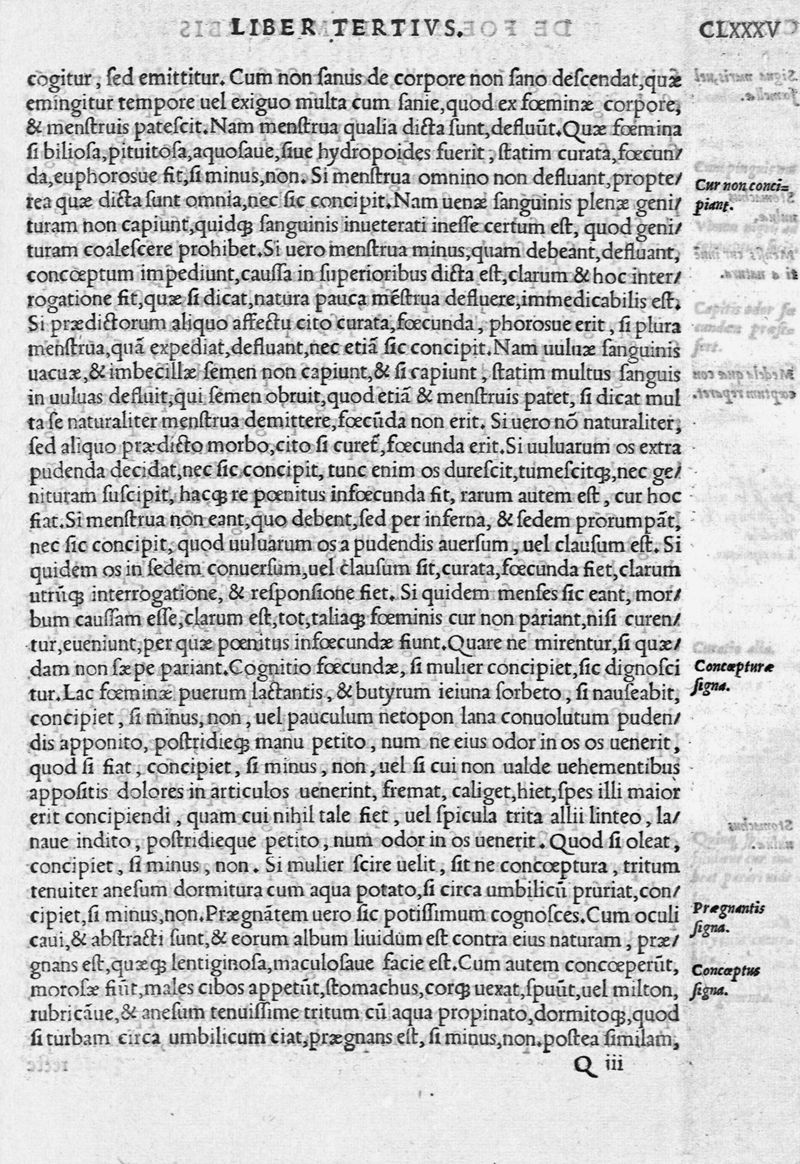 LIBER TERTIVS. CLXXXV
cogitur, ſed emittitur. Cum non ſanus de corpore non ſano deſcendat, quæ
emingitur tempore uel exiguo multa cum ſanie, quod ex fœminæ corpore,
& menſtruis pateſcit. Nam menſtrua qualia dicta ſunt, defluūt. Quæ fœmina
ſi bilioſa, pituitoſa, aquoſaue, ſiue hydropoides fuerit, ſtatim curata, fœcun/
da, euphorosue fit, ſi minus, non. Si menſtrua omnino non defluant, propte/
rea quæ dicta ſunt omnia, nec ſic concipit. Nam uenæ ſanguinis plenæ geni/
Cur non conci=
piant.
turam non capiunt, quidqꝫ ſanguinis inueterati ineſſe certum eſt, quod geni/
turam coaleſcere prohibet. Si uero menſtrua minus, quam debeant, defluant,
concœptum impediunt, cauſſa in ſuperioribus dicta eſt, clarum & hoc inter/
rogatione fit, quæ ſi dicat, natura pauca mēſtrua defluere, immedicabilis eſt.
Si prædictorum aliquo affectu cito curata, fœcunda, phorosue erit, ſi plura
menſtrua, quā expediat, defluant, nec etiā ſic concipit. Nam uuluæ ſanguinis
uacuæ, & imbecillæ ſemen non capiunt, & ſi capiunt, ſtatim multus ſanguis
in uuluas defluit, qui ſemen obruit, quod etiā & menſtruis patet, ſi dicat mul
ta ſe naturaliter menſtrua demittere, fœcūda non erit. Si uero nō naturaliter,
ſed aliquo prædicto morbo, cito ſi curet̃, fœcunda erit. Si uuluarum os extra
pudenda decidat, nec ſic concipit, tunc enim os dureſcit, tumeſcitqꝫ, nec ge/
nituram ſuſcipit, hacqꝫ re pœnitus infœcunda fit, rarum autem eſt, cur hoc
fiat. Si menſtrua non eant, quo debent, ſed per inferna, & ſedem prorumpāt,
nec ſic concipit, quod uuluarum os a pudendis auerſum, uel clauſum eſt. Si
quidem os in ſedem conuerſum, uel clauſum ſit, curata, fœcunda fiet, clarum
utrūqꝫ interrogatione, & reſponſione fiet. Si quidem menſes ſic eant, mor/
bum cauſſam eſſe, clarum eſt, tot, taliaqꝫ fœminis cur non pariant, niſi curen/
tur, eueniunt, per quæ pœnitus infœcundæ fiunt. Quare ne mirentur, ſi quæ/
dam non ſæpe pariant. Cognitio fœcundæ, ſi mulier concipiet, ſic dignoſci
Concœpturæ
ſigna.
tur. Lac fœminæ puerum lactantis, & butyrum ieiuna ſorbeto, ſi nauſeabit,
concipiet, ſi minus, non, uel pauculum netopon lana conuolutum puden/
dis apponito, poſtridieqꝫ manu petito, num ne eius odor in os os uenerit,
quod ſi fiat, concipiet, ſi minus, non, uel ſi cui non ualde uehementibus
appoſitis dolores in articulos uenerint, fremat, caliget, hiet, ſpes illi maior
erit concipiendi, quam cui nihil tale fiet, uel ſpicula trita allii linteo, la/
naue indito, poſtridieque petito, num odor in os uenerit. Quod ſi oleat,
concipiet, ſi minus, non. Si mulier ſcire uelit, ſit ne concœptura, tritum
tenuiter aneſum dormitura cum aqua potato, ſi circa umbilicū pruriat, con/
cipiet, ſi minus, non. Prægnātem uero ſic potiſſimum cognoſces. Cum oculi
Prægnantis
ſigna.
caui, & abſtracti ſunt, & eorum album liuidum eſt contra eius naturam, præ/
gnans eſt, quæqꝫ lentiginoſa, maculoſaue facie eſt. Cum autem concœperūt,
Concœptus
ſigna.
moroſæ fiūt, males cibos appetūt, ſtomachus, corqꝫ uexat, ſpuūt, uel milton,
rubricāue, & aneſum tenuiſſime tritum cū aqua propinato, dormitoqꝫ, quod
ſi turbam circa umbilicum ciat, prægnans eſt, ſi minus, non. poſtea ſimilam,
Q iii